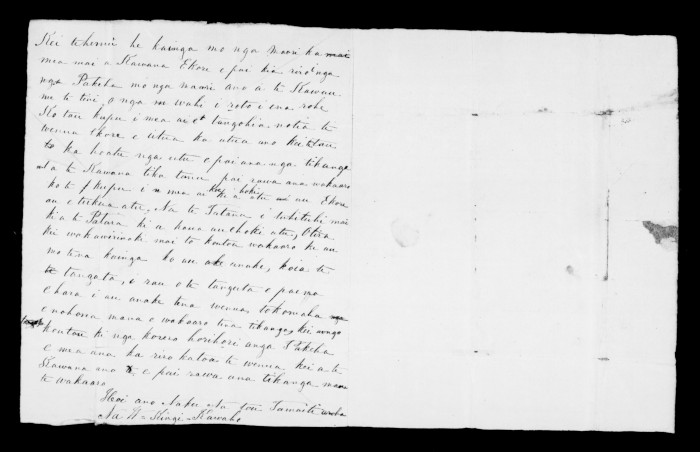 Kei te hemu he kainga mo nga maori ka mai
mea mai a Kawana Ekore e pai kia riro nga
nga Pakeha mo nga maori ano a te Kawana
me te tini, o nga wahi i roto i ena rohe
Ko tau kupu i mea ai tangohia noatia te
wenua Ekore e utua ka utua ano kei tau
ka hoatu nga utu e pai ana nga tikanga
a te Kawana tika tonu pai rawa ana wakaaro
ko te kupu i mea ai koe hoki ki a atu au Ekore
au e tukua atu, Na te Tutana i tuhituhi mai
ki a te Patara ki a houa au e hoki atu, Otira
kei wakawirinaki mai to koutou wakaaro ki au
mo tena kainga ko au ake anake, koia te
tangata, e rau o te tangata e pae ana
Ehara i au anake tena wenua, tokomaha nga
e nohona mana e wakaaro tena tikanga, kei rongo
koutou ki nga korero horihori anga Pakeha
e mea ana ka riro katoa te wenua kei a te
Kawana ano e pai rawa ana tikanga mana
te wakaaro
Heoi ano Naku Na tou Tamaiti aroha
Na W. Kingi Kawaho